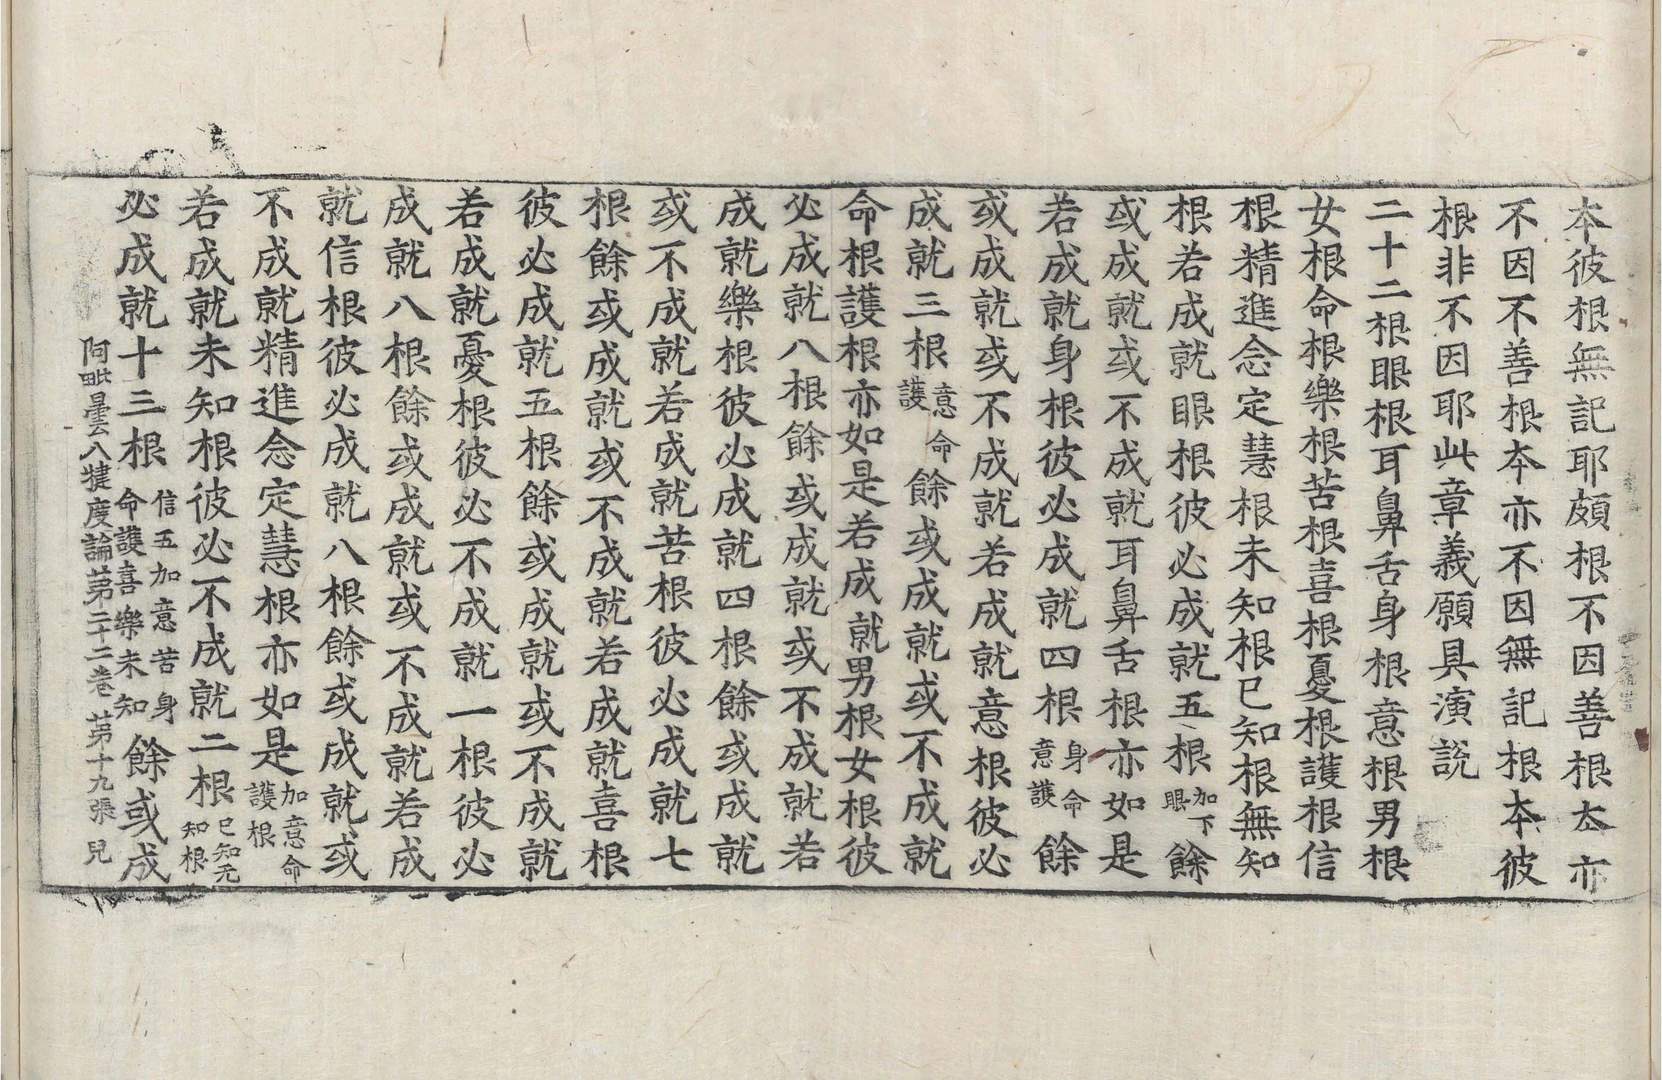 本彼根無記耶頗根不因善根本亦
不因不善根本亦不因無記根本彼
根非不因耶此章義願具演說
二十二根眼根耳鼻舌身根意根男根
女根命根樂根苦根喜根憂根護根信
根精進念定慧根未知根已知根無知
根若成就眼根彼必成就五根加下眼餘
或成就或不成就耳鼻舌根亦如是
若成就身根彼必成就四根身命意護餘
或成就或不成就若成就意根彼必
成就三根意命護餘或成就或不成就
命根護根亦如是若成就男根女根彼
必成就八根餘或成就或不成就若
成就樂根彼必成就四根餘或成就
或不成就若成就苦根彼必成就七
根餘或成就或不成就若成就喜根
彼必成就五根餘或成就或不成就
若成就憂根彼必不成就一根彼必
成就八根餘或成就或不成就若成
就信根彼必成就八根餘或成就或
不成就精進念定慧根亦如是加意命護根
若成就未知根彼必不成就二根已知无知根
必成就十三根信五加意苦身命護喜樂未知餘或成
阿毗曇八犍度論第二十二卷 第十九張 兒